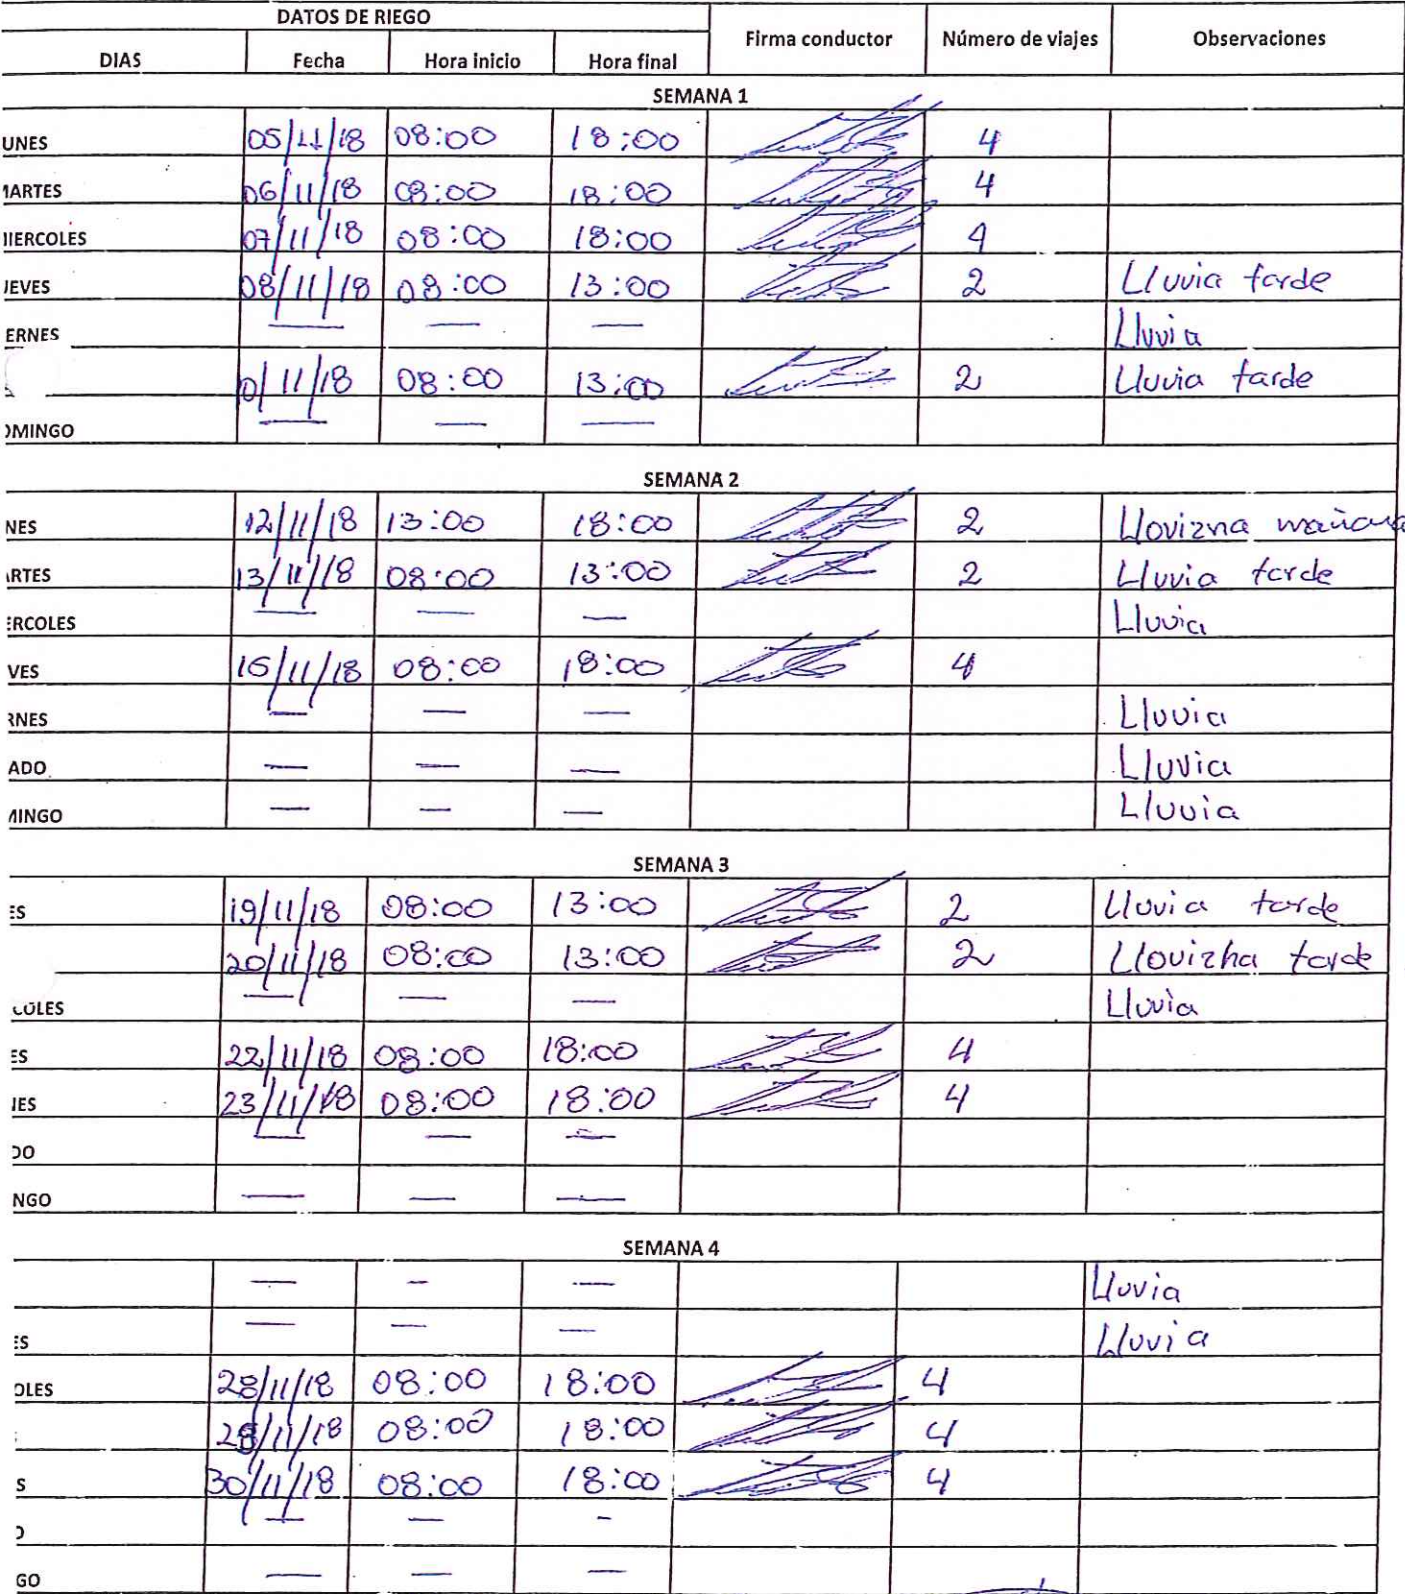 DATOS DE RIEGO
DIAS Fecha Hora inicio Hora final Firma conductor Número de viajes Observaciones
SEMANA 1
UNES 05/11/18 08:00 18:00 4
MARTES 06/11/18 08:00 18:00 4
MIERCOLES 07/11/18 08:00 18:00 4
JEVES 08/11/18 08:00 13:00 2 Lluvia tarde
ERNES — — — Lluvia
0/11/18 08:00 13:00 2 Lluvia tarde
OMINGO — — —
SEMANA 2
NES 12/11/18 13:00 18:00 2 Llovizna mañana
ARTES 13/11/18 08:00 13:00 2 Lluvia tarde
ERCOLES — — — Lluvia
VES 15/11/18 08:00 18:00 4
RNES — — — Lluvia
ADO — — — Lluvia
MINGO — — — Lluvia
SEMANA 3
ES 19/11/18 08:00 13:00 2 Lluvia tarde
20/11/18 08:00 13:00 2 Llovizna tarde
COLES — — — Lluvia
ES 22/11/18 08:00 18:00 4
NES 23/11/18 08:00 18:00 4
DO — — —
NGO — — —
SEMANA 4
— — — Lluvia
ES — — — Lluvia
OLES 28/11/18 08:00 18:00 4
/11/18 08:00 18:00 4
S 30/11/18 08:00 18:00 4
O — — -
GO — — —